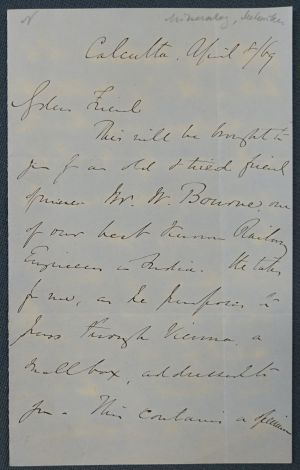 N
Mineralog,
Calcutta, April 8/69
My dear Friend
This will be brought to
you by an old & tried friend
of mine Mr. W. Bourne, one
of our best known Railway
Engineers in India. He takes
for me, as he purposes to
pass through Vienna, a
small box, addressed to
you. This contains a specimen